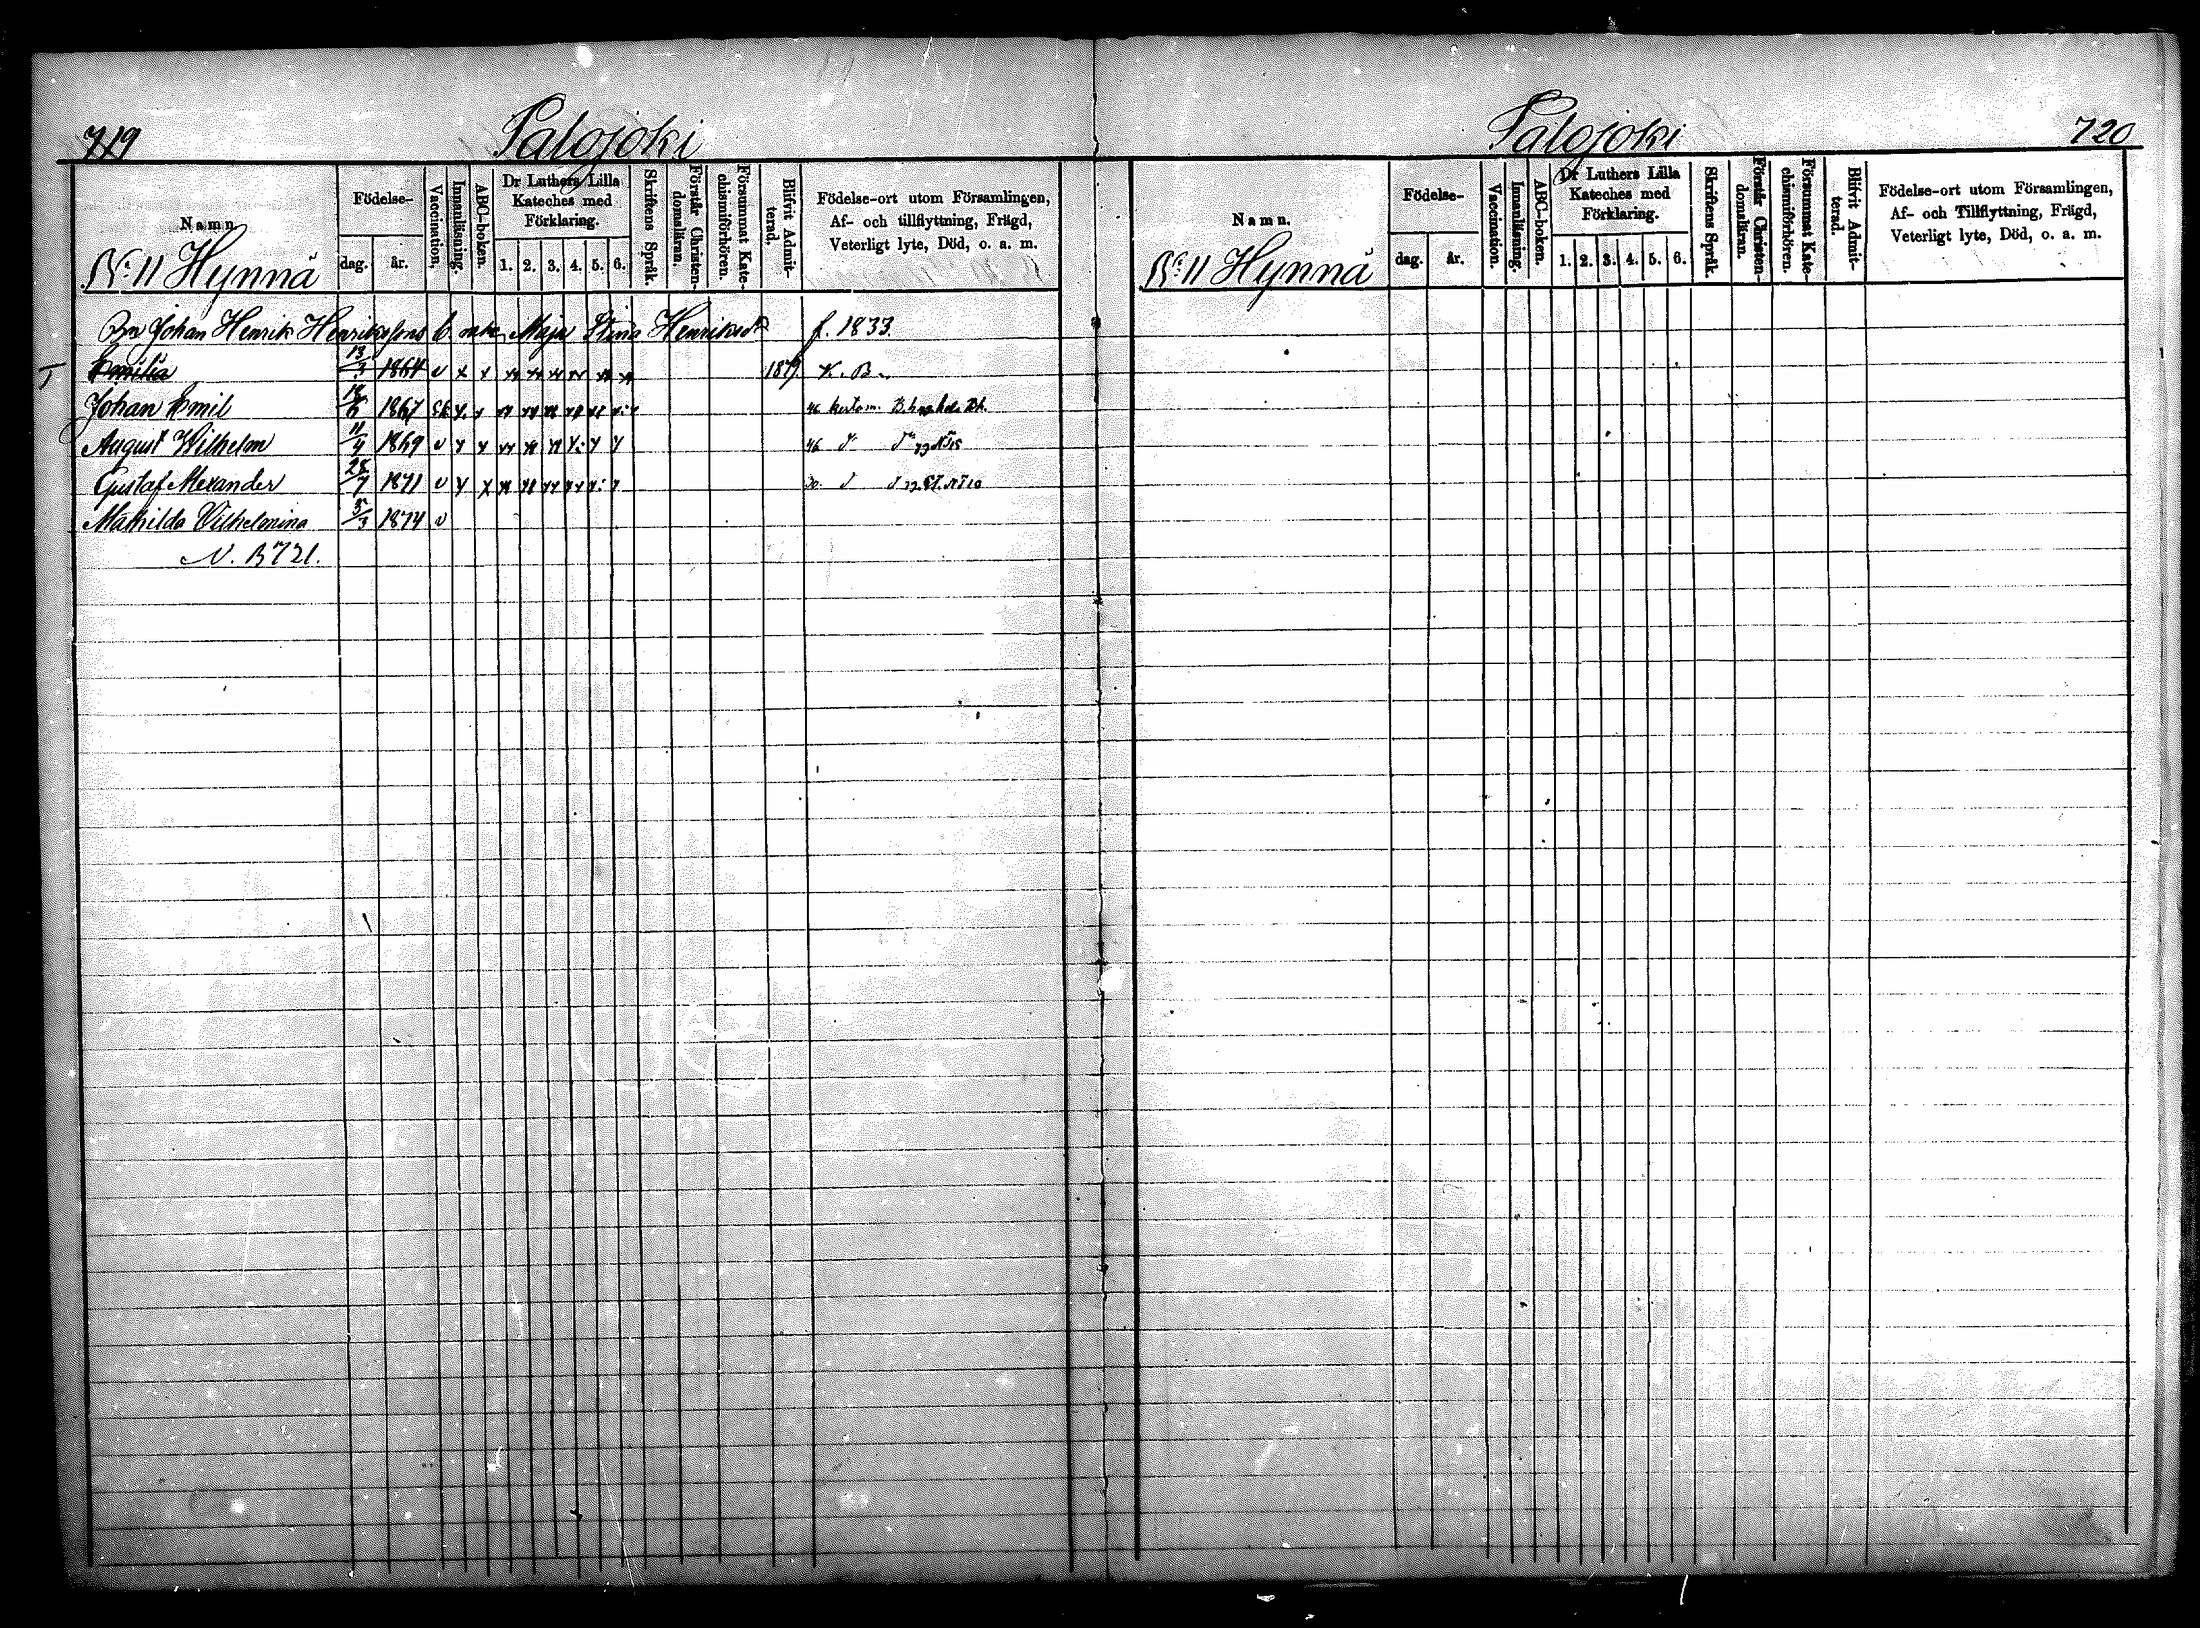 719
Palojoki
Namn.
Födelse-
dag.
år.
Vaccination,
Innanläsning.
ABC-boken.
Dr Luthers Lilla
Kateches med
Förklaring.
1. 2. 3. 4. 5. 6.
Skriftens Språk.
Förstår Christen-
domsläran.
Försummat Kate-
chismiförhören.
Blifvit Admit-
terad.
Födelse-ort utom Församlingen,
Af- och tillflyttning, Frägd,
Veterligt lyte, Död, o. a. m.
No 11 Hynnä
Johan Henrik Henrikssons enka Maja Stina Henriksdr f. 1833.
Emilia 13/3 1864 v x x 1879 K. B.
Johan Emil 18/6 1867
August Wilhelm 11/4 1869 v
Gustaf Alexander 28/7 1871 v
Mathilda Vilhelmina 5/3 1874 v
N. B 721.
Palojoki
720
Namn.
Födelse-
dag.
år.
Vaccination.
Innanläsning.
ABC-boken.
Dr Luthers Lilla
Kateches med
Förklaring.
1. 2. 3. 4. 5. 6.
Skriftens Språk.
Förstår Christen-
domsläran.
Försummat Kate-
chismiförhören.
Blifvit Admit-
terad.
Födelse-ort utom Församlingen,
Af- och Tillflyttning, Frägd,
Veterligt lyte, Död, o. a. m.
No 11 Hynnä